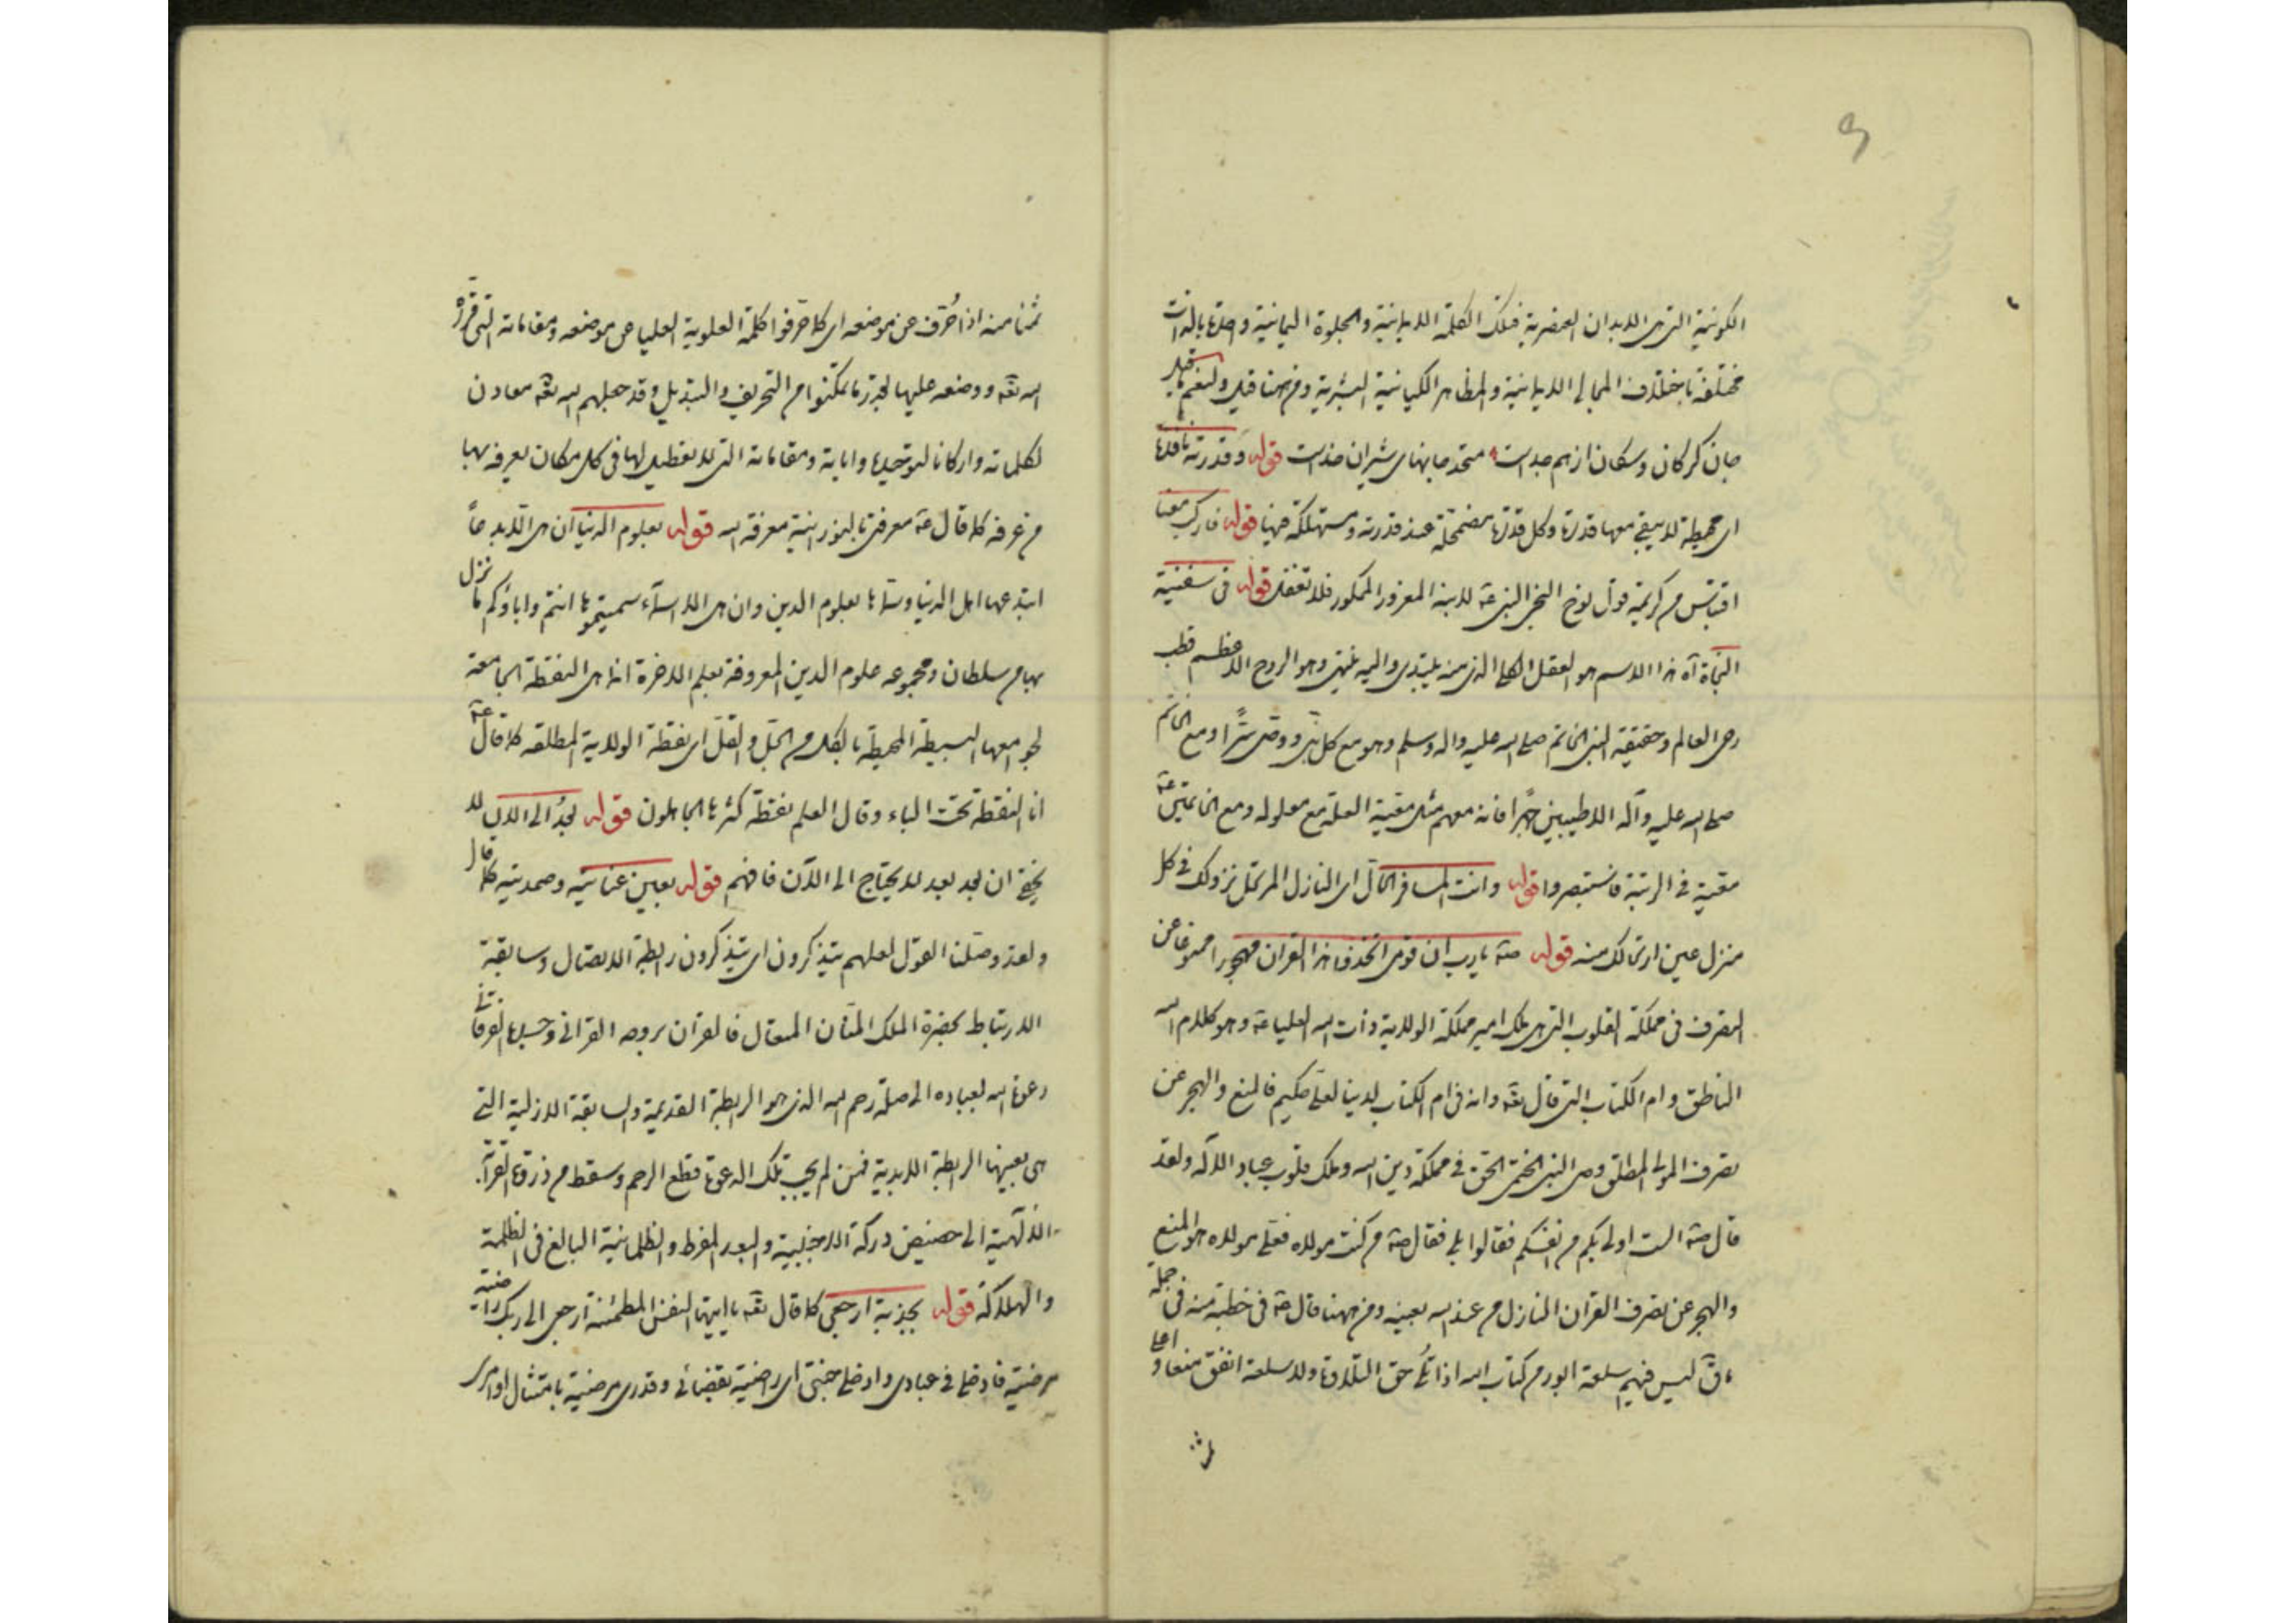 الكونية التى هى الابدان العنصرية فتلك الكلمة الالهيانية والجلوة اليمانية واحدة بالذات
مختلفة باختلاف المجالى الالهيانية والمظاهر الكيانية البشرية ومن هنا قيل ولنعم ما قيل
جان گرگان و سگان از هم جداست متحد جانهاى شيران خداست قوله وقدرته نافذة
اى محيطة لا يبقى معها قدرة وكل قدرة مضمحلة عند قدرته ومستهلكة فيها قوله فاركب معنا
اقتباس من كريمة قول نوح النبى عه لابنه المغرور الممكور فلا تغفل قوله فى سفينة
النجاة آه هذا الاسم هو العقل الكلى الذى منه يبتدى واليه ينتهى وهو الروح الاعظم قطب
رحى العالم وحقيقة النبى الخاتم صلى الله عليه واله وسلم وهو مع كل نبى ووصى سرًّا ومع الخاتم
صلى الله عليه وآله الاطيبين جهرًا فانه معهم مثل معية العلة مع معلوله ومع الخاتمين عه
معية فى الرتبة فاستبصروا قوله وانت المسافر الحالّ اى النازل المرتحل نزولك فى كل
منزل عين ارتحالك منه قوله صه يا رب ان قومى اتخذوا هذا القران مهجورا ممنوعا عن
التصرف فى مملكة القلوب التى هى ملك امير مملكة الولاية ذات الله العليا عه وهو كلام الله
الناطق وام الكتاب التى قال تعه وانه فى ام الكتاب لدينا لعلى حكيم فالمنع والهجر عن
تصرف المولى المطلق وصى النبى الختمى الحق فى مملكة دين الله وملك قلوب عباد الاله ولقد
قال صه الست اولى بكم من انفسكم فقالوا بلى فقال صه من كنت مولاه فعلى مولاه هو المنع
والهجر عن تصرف القران النازل من عند الله بعينه ومن ههنا قال عه فى خطبة منه فى جملة
ليس فيهم سلعة ابور من كتاب الله اذا تلى حق التلاوة ولا سلعة انفق منها واغلى
ثمنا منه اذا حُرّف عن موضعه اى كلما حرّفوا كلمة العلوية العليا عن موضعه ومقاماته التى قرّره
الله تعه ووضعه عليها بقدر ما تمكنوا من التحريف والتبديل وقد جعلهم الله تعه معادن
لكلماته واركانا لتوحيده واياته ومقاماته التى لا تعطيل لها فى كل مكان يعرفه بها
من عرفه كما قال عه معرفتى بالنورانية معرفة الله قوله بعلوم الدنيا ان هى الا بدعاً
ابتدعها اهل الدنيا وسمّاها بعلوم الدين وان هى الا اسمآء سميتموها انتم واباؤكم ما نزل
بها من سلطان ومجموعه علوم الدين المعروفة بعلم الاخرة انما هى النقطة الجامعة
لجوامعها البسيطة المحيطة بالكل من الجلّ والقلّ اى نقطة الولاية المطلقه كما قال عه
انا النقطة تحت الباء وقال العلم نقطة كثرها الجاهلون قوله بَعْدُ الى الآن لا
يخفى ان بعد بعد لا يحتاج الى الآن فافهم قوله بعين عنايته وصمديته كما قال
ولقد وصلنا القول لعلهم يتذكرون اى يتذكرون رابطة الاتصال وسابقة
الارتباط بحضرة الملك المنان المتعال فالقران بروحه القرانى وجسده الفرقانى
دعوة الله لعباده الى صلة رحم الله الذى هو الرابطة القديمة والسابقة الازلية التى
هى بعينها الرابطة الابدية فمن لم يجب تلك الدعوة قطع الرحم وسقط من ذروة القرآبة
الالهية الى حضيض دركة الاجنبية والبعد المفرط والظلمانية البالغ فى الظلمة
والهلاكة قوله بجذبة ارجعى كما قال تعه يا ايتها النفس المطمئنة ارجعى الى ربك راضية
مرضية فادخلى فى عبادى وادخلى جنتى اى راضية بقضائى وقدرى مرضية بامتثال اوامرى